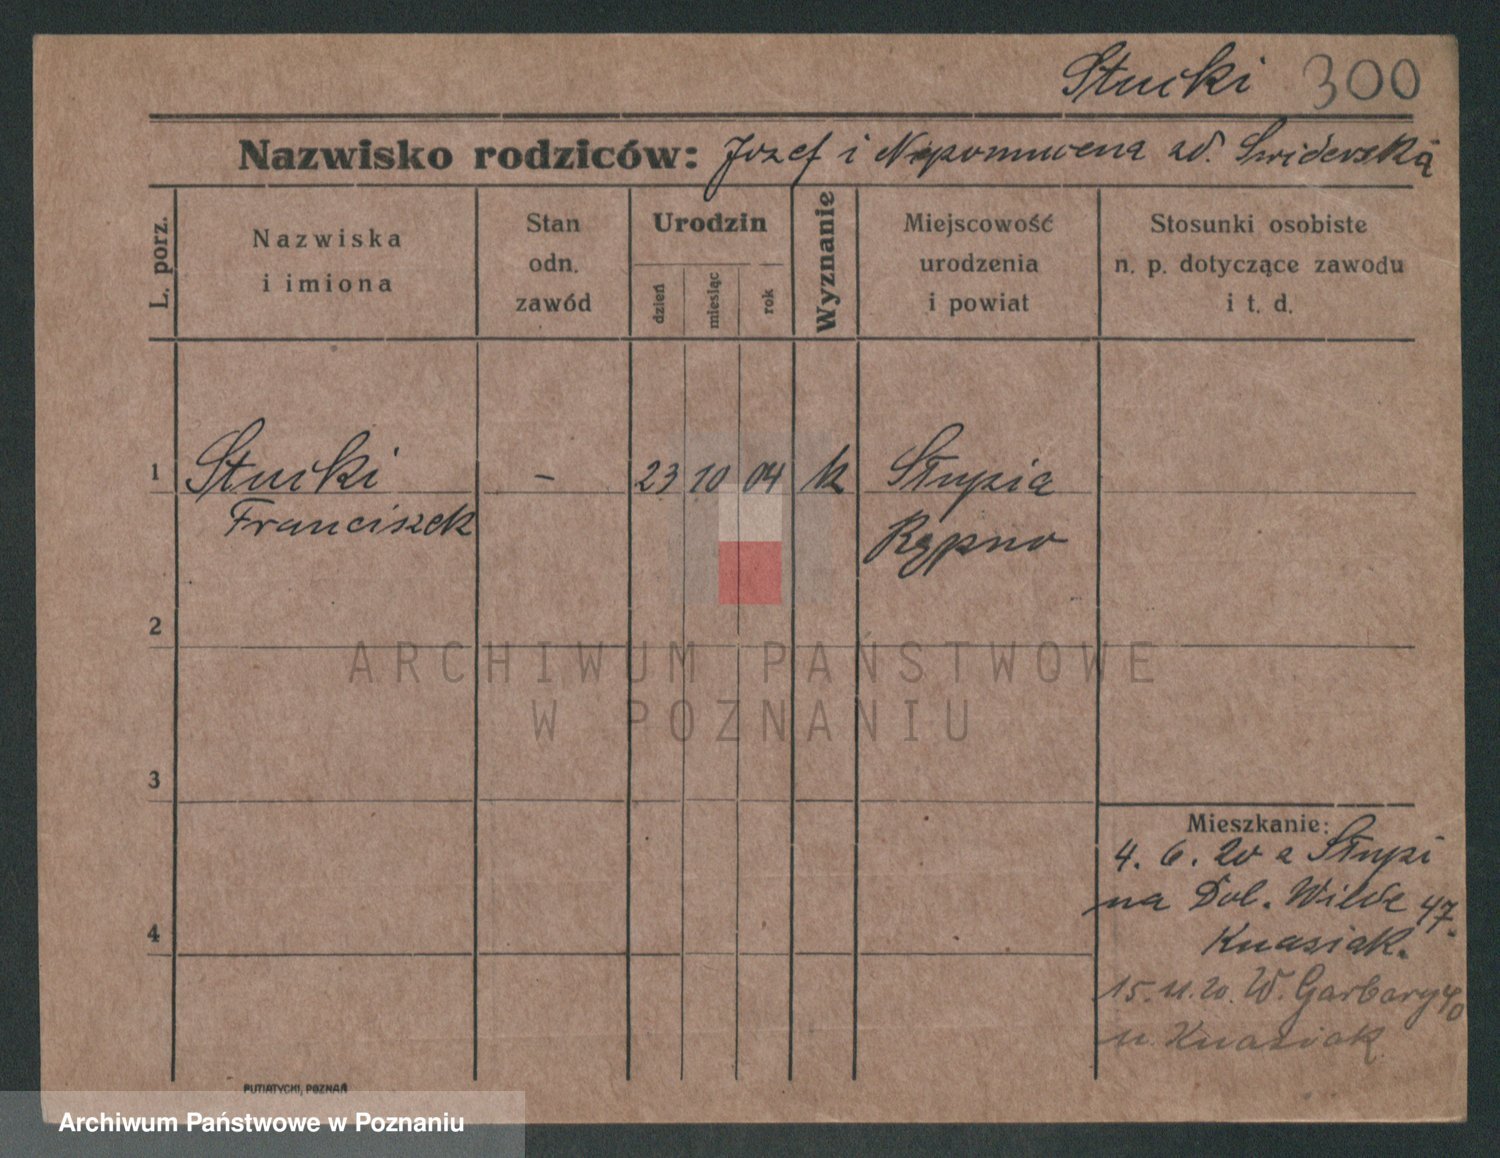 Stucki 300
Nazwisko rodziców: Jozef i Nepomucena zd. Swiderska
L. porz.
Nazwiska
i imiona
Stan
odn.
zawód
Urodzin
dzień
miesiąc
rok
Wyznanie
Miejscowość
urodzenia
i powiat
Stosunki osobiste
n. p. dotyczące zawodu
i t. d.
1 Stucki – 23 10 04 k Słupia
Franciszek Kępno
2
3
4
Mieszkanie:
4. 6. 20 z Słupi
na Dol. Wilde 47.
Kuasiak.
15.11.20. W. Garbary 40
u. Kuasiak
PUTIATYCKI, POZNAŃ
ARCHIWUM PAŃSTWOWE
W POZNANIU
Archiwum Państwowe w Poznaniu